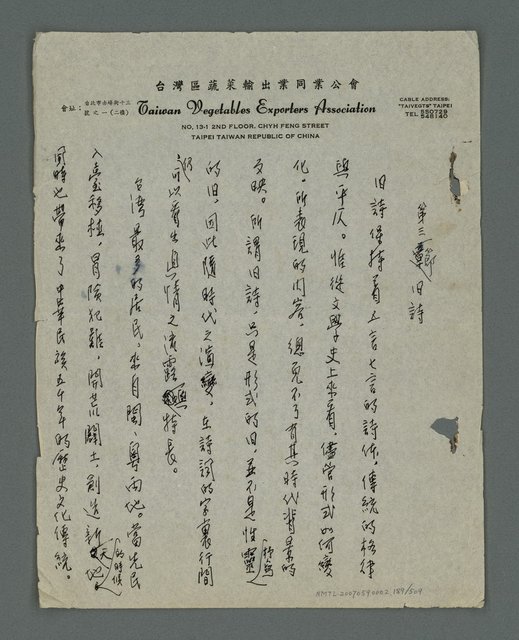 台灣區蔬菜輸出業同業公會
會址：台北市赤峰街十三號之一(二樓)
Taiwan Vegetables Exporters Association
CABLE ADDRESS:
"TAIVEGTS" TAIPEI
TEL
NO. 13-1 2ND FLOOR, CHYH FENG STREET
TAIPEI TAIWAN REPUBLIC OF CHINA
第三節 旧詩
旧詩保持着五言七言的詩作，傳統的格律
與平仄。惟從文學史上來看，儘管形式如何變
化，所表現的內容，總免不了有其時代背景的
反映。所謂旧詩，只是形式的旧，並不是性靈抒寫
的旧，因此隨時代之演變，在詩詞的字裏行間
仍可以看出真情之流露與特長。
台灣最多的居民，來自閩、粵兩地，當先民
入臺移植，冒險犯難，開荒闢土，創造新天地的時候
同時也帶來了中華民族五千年的歷史文化傳統。
NMTL20070590002 189/509